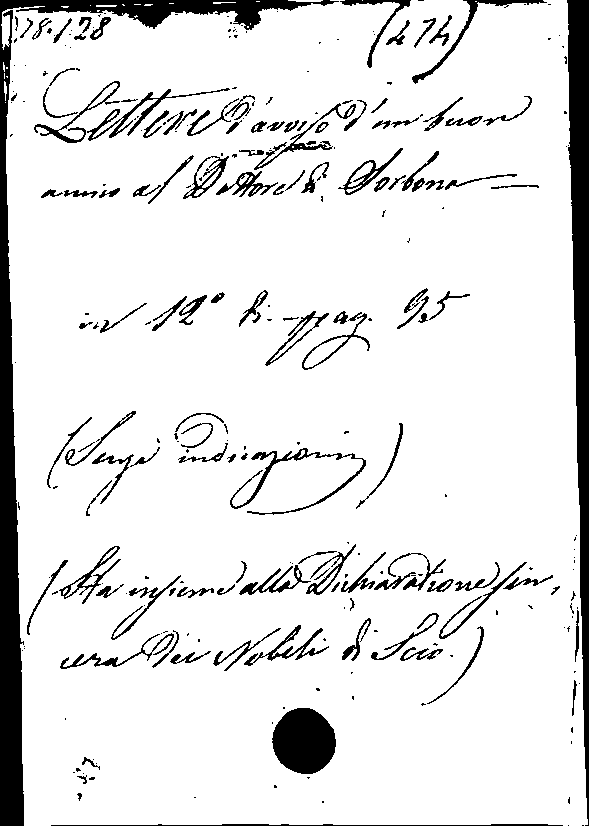 78.1.28 (474)
Lettere d'avviso d'un buon
amico al Dottore di Sorbona =
in 12° di pag. 95
(Senza indicazioni)
(Sta insieme alla Dichiaratione sin,
cera dei Nobili di Scio.)